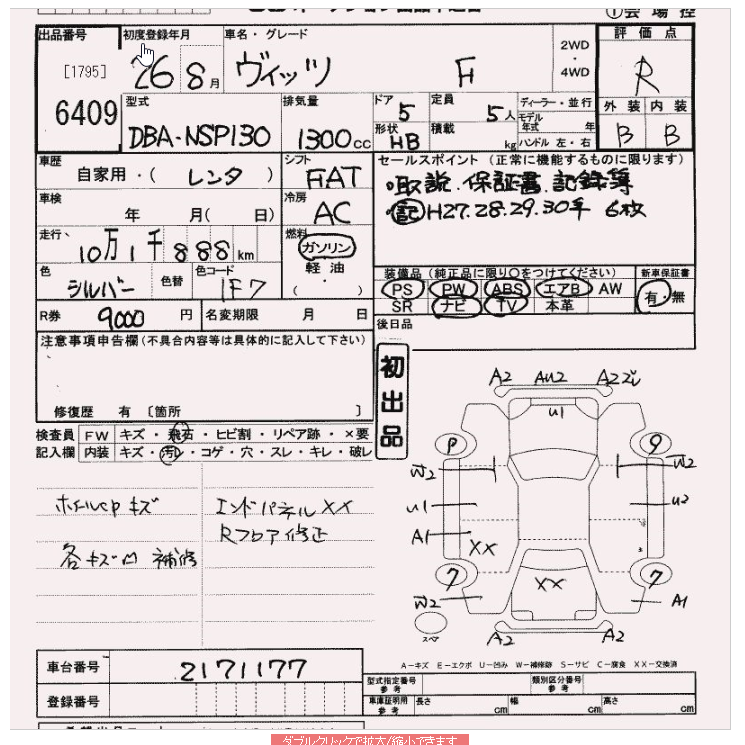 出品番号
初度登録年月
車名・グレード
評価点
[1795]
6409
26 8月
ヴィッツ F
2WD
・
4WD
R
外装 内装
B B
型式
DBA-NSP130
排気量
1300cc
ドア
5
定員
5人
ディーラー・並行
モデル年式 年
形状
HB
積載
kg
ハンドル 左・右
車歴
自家用・( レンタ )
シフト
FAT
セールスポイント (正常に機能するものに限ります)
・取説.保証書.記録簿
・記 H27.28.29.30年 6枚
車検
年 月( 日)
冷房
AC
走行、
10万1千888km
燃料
ガソリン
・
軽油
・
( )
色
シルバー
色替
色コード
1F7
装備品 (純正品に限り○をつけてください)
新車保証書
PS PW ABS エアB AW
SR ナビ TV 本革
有・無
R券
9000 円
名変期限 月 日
後日品
注意事項申告欄(不具合内容等は具体的に記入して下さい)
修復歴 有 〔箇所 〕
初出品
検査員
記入欄
FW キズ・飛石・ヒビ割・リペア跡・×要
内装 キズ・汚レ・コゲ・穴・スレ・キレ・破レ
ホイルcpキズ
各キズ凹 補修
エンドパネルXX
Rフロア修正
A2 AU2 A2
U1
P 9
W2 W2
U1 U2
A1
XX
7 XX 7
W2 A1
スペア
A2 A2
A-キズ E-エクボ U-凹み W-補修跡 S-サビ C-腐食 XX-交換済
車台番号
2171177
登録番号
型式指定番号
参考
類別区分番号
参考
車庫証明用
参考
長さ cm
幅 cm
高さ cm
ダブルクリックで拡大/縮小できます